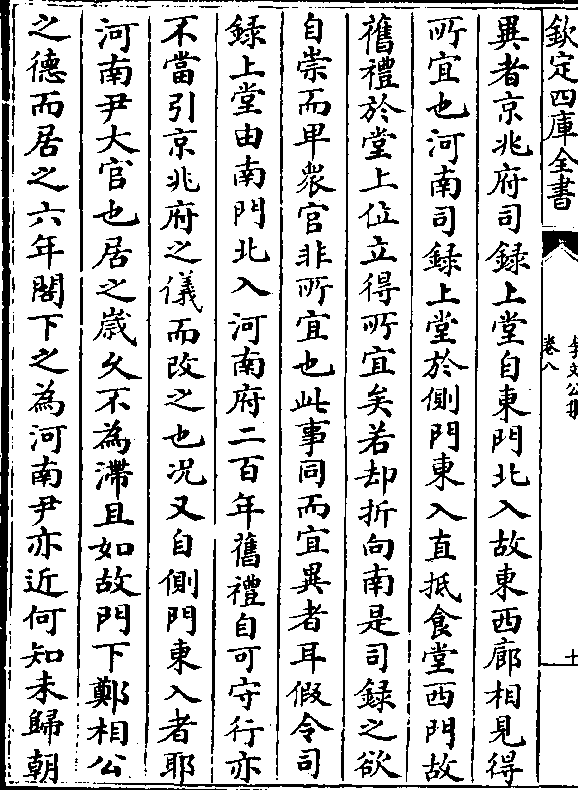 欽定四庫全書
卷八
異者京兆府司録上堂自東門北入故東西廊相見得
所宜也河南司録上堂於側門東入直抵食堂西門故
舊禮於堂上位立得所宜矣若却折向南是司録之欲
自崇而卑衆官非所宜也此事同而宜異者耳假令司
録上堂由南門北入河南府二百年舊禮自可守行亦
不當引京兆府之儀而改之也况又自側門東入者耶
河南尹大官也居之歳久不為滯且如故門下鄭相公
之德而居之六年閣下之為河南尹亦近何知未歸朝